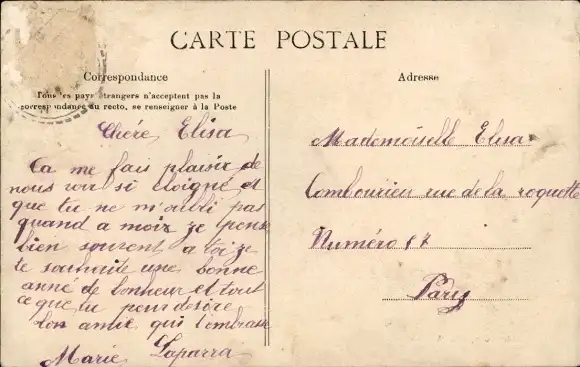 CARTE POSTALE
Correspondance
Tous les pays étrangers n'acceptent pas la
correspondance au recto, se renseigner à la Poste
Chére Elisa
Ca me fais plaisir de
nous voir si éloigné et
que tu ne m'oubli pas
quand a moiz je pense
bien souvent a toi ze
te souhaite une bonne
anné de bonheur et tout
ce que tu peux désire
ton amie qui t'embrasse
Marie Laparra
Adresse
Mademoiselle Elisa
Combourieu rue de la roquette
Numéro 17
Paris